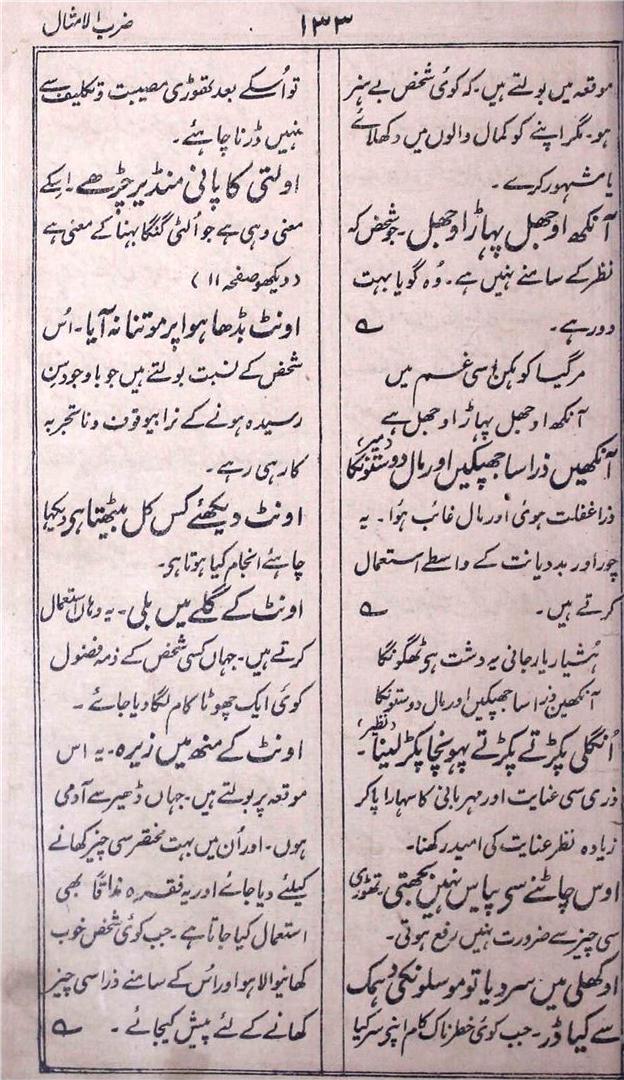 ضرب الامثال
۱۳۳
موقعہ میں بولتے ہیں۔ کہ کوئی شخص بے ہنر
ہو۔ مگر اپنے کو کمال والوں میں دکھلائے
یا مشہور کرے۔
آنکھ اوجھل پہاڑ اوجھل۔ جو شخص کہ
نظر کے سامنے نہیں ہے۔ وُہ گویا بہت
دور ہے۔
مرگیا کوہکن اسی غم میں
آنکھ اوجھل پہاڑ اوجھل ہے
(میر)
آنکھیں ذرا سا جھپکیں اور مال دوستونکا
ذرا غفلت ہوئی اور مال غائب ہوُا۔ یہ
چور اور بددیانت کے واسطے استعمال
کرتے ہیں۔
ہُشیار یار جانی یہ دشت ہی ٹھگونکا
آنکھیں ذرا سا جھپکیں اور مال دوستونکا
(نظیر)
اُنگلی پکڑتے پکڑتے پہونچا پکڑ لینا۔
ذری سی عنایت اور مہربانی کا سہارا پاکر
زیادہ نظر عنایت کی امید رکھنا۔
اوس چاٹنے سی پیاس نہیں بجھتی۔ تھوڑی
سی چیز سے ضرورت نہیں رفع ہوتی۔
اوکھلی میں سر دیا تو موسلونکی دہمک
سے کیا ڈر۔ جب کوئی خطرناک کام اپنی سر کیا
تو اُسکے بعد تھوڑی مصیبت و تکلیف سے
نہیں ڈرنا چاہئے۔
اولتی کا پانی منڈیر چڑھے۔ اسکے
معنی وہی ہے جو اُلٹی گنگا بہنا کے معنی ہے
(دیکھو صفحہ ۱۱)
اونٹ بڈھا ہوا پر موتنا نہ آیا۔ اُس
شخص کے نسبت بولتے ہیں جو باوجود سن
رسیدہ ہونے کے نرا بیوقوف و ناتجربہ
کار ہی رہے۔
اونٹ دیکھئے کس کل بیٹھتا ہی۔ دیکہا
چاہئے انجام کیا ہوتا ہی۔
اونٹ کے گلے میں بلی۔ یہ وہاں استعمال
کرتے ہیں۔ جہاں کسی شخص کے ذمہ فضول
کوئی ایک چھوٹا کام لگا دیا جائے۔
اونٹ کے منھ میں زیرہ۔ یہ اس
موقعہ پر بولتے ہیں۔ جہاں ڈھیر سے آدمی
ہوں۔ اور اُن میں بہت مختصر سی چیز کھانے
کیلئے دیا جائے اور یہ فقرہ مذاقاً بھی
استعمال کیا جاتا ہے۔ جب کوئی شخص خوب
کھانیوالا ہو اور اُس کے سامنے ذرا سی چیز
کھانے کے لئے پیش کیجائے۔